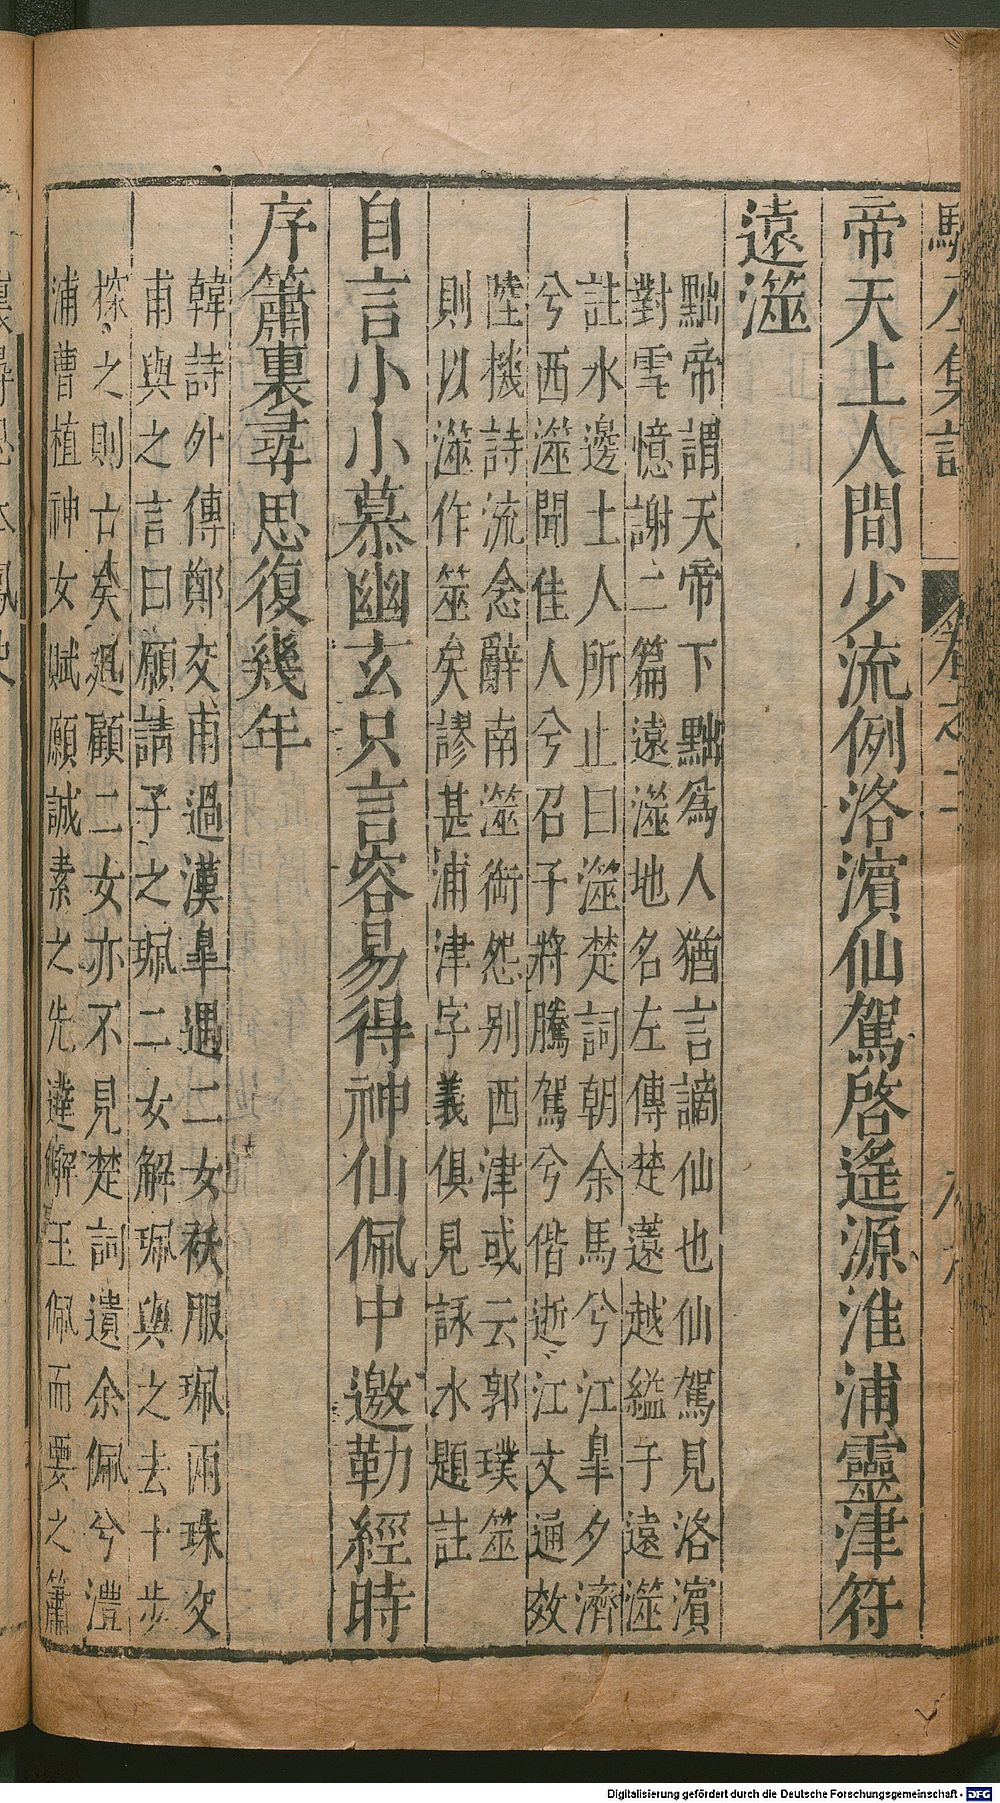 駱丞集註 卷之二
帝天上人間少流例洛濱仙駕啓遙源淮浦靈津符
遠澨
黜帝謂天帝下黜爲人猶言謫仙也仙駕見洛濱
對雪憶謝二篇遠澨地名左傳楚薳越縊于遠澨
註水邊土人所止曰澨楚詞朝余馬兮江皐夕濟
兮西澨聞佳人兮召子將騰駕兮偕逝江文通效
陸機詩流念辭南澨衘怨别西津或云郭璞筮
則以澨作筮矣謬甚浦津字義俱見詠水題註
自言小小慕幽玄只言容易得神仙佩中邀勒經時
序簫裏尋思復幾年
韓詩外傳鄭交甫過漢皐遇二女袄服珮兩珠交
甫與之言曰願請子之珮二女解珮與之去十步
探之則亡矣廻顧二女亦不見楚詞遺余佩兮澧
浦曹植神女賦願誠素之先達解玉佩而要之簫
Digitalisierung gefördert durch die Deutsche Forschungsgemeinschaft - DFG